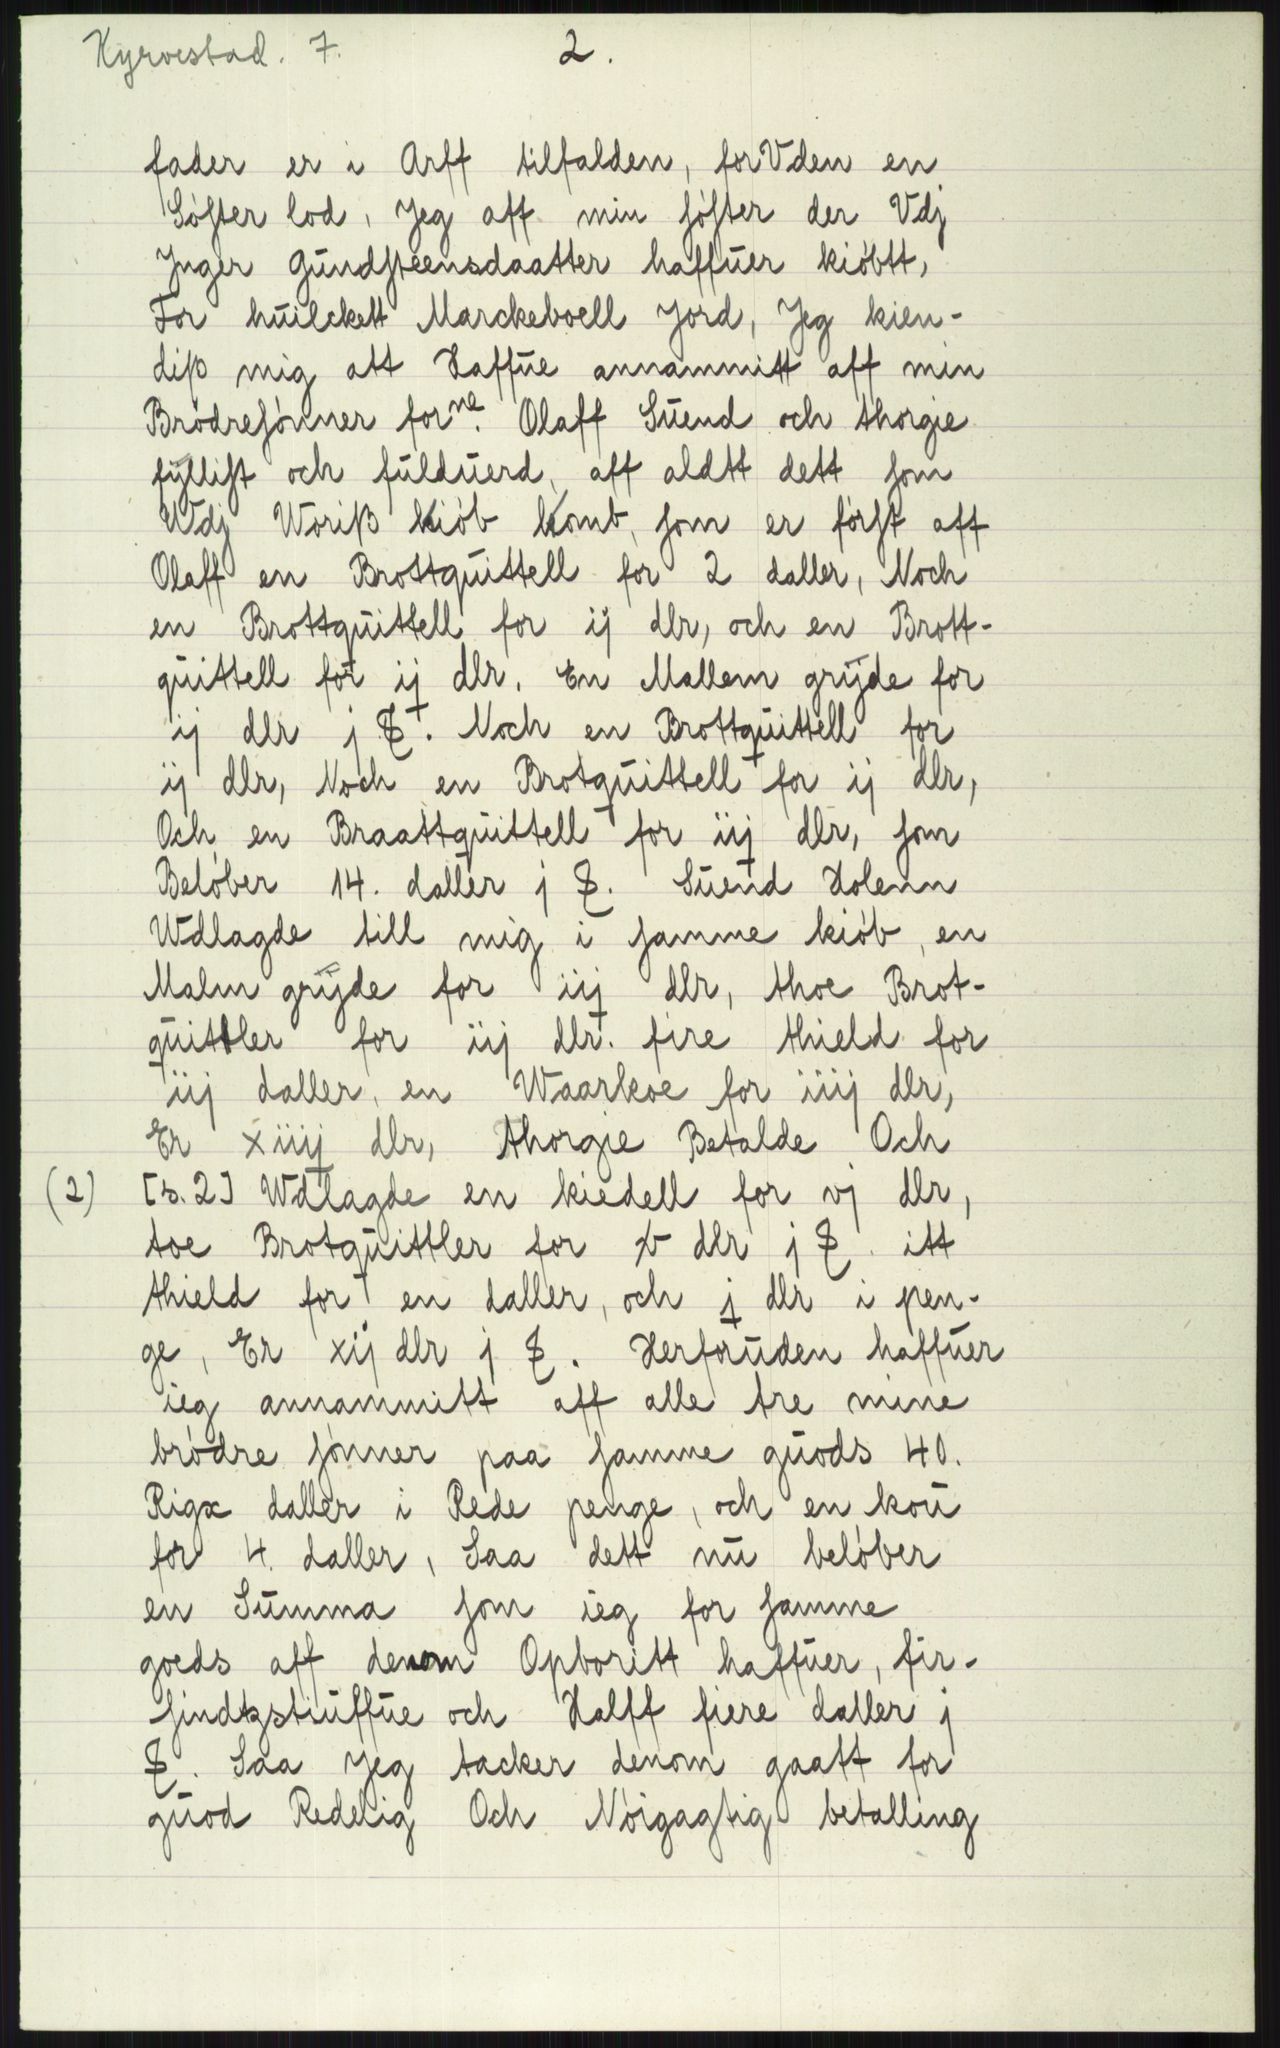 Kyrvestad. 7.
2.
fader er i Arff tilfalden, forVden en
Søster lod, Jeg aff min søster der Vdj
Jnger Gundsteensdaatter haffuer kiøbtt,
For huilckett Marckeboell Jord, Jeg kien-
diß mig att Haffue annammitt aff min
Brødresønner forne. Olaff Suend och thorgie
fyllist och fulduerd, aff aldtt dett som
Wdj Woriß kiøb komb, som er først aff
Olaff en Brottquittell for 2 daller, Noch
en Brottquittell for ij dlr, och en Brott-
quittell for ij dlr. En Mallem gryde for
ij dlr j ₰. Noch en Brottquittell for
ij dlr, Noch en Brotquittell for ij dlr,
Och en Braattquittell for iij dlr, som
Beløber 14. daller j ₰. Suend Holenn
Wdlagde till mig i samme kiøb, en
Malm gryde for iij dlr, thoe Brot-
quittler for iij dlr. fire thield for
iij daller, en Waarkoe for iiij dlr,
Er xiiij dlr, Thorgie Betalde Och
(2) [s. 2] Wdlagde en kiedell for vj dlr,
toe Brotquittler for v dlr j ₰. itt
thield for en daller, och j dlr i pen-
ge, Er xij dlr j ₰. Herforuden haffuer
ieg annammitt aff alle tre mine
brødre sønner paa samme guods 40.
Rigx daller i Rede penge, och en kou
for 4. daller, Saa dett nu beløber
en Summa som ieg for samme
goeds aff denom Opboritt haffuer, fir-
sindtzstiuffue och Halff fiere daller j
₰. Saa Jeg tacker denom gaatt for
guod Redelig Och Nøigagtig betalling